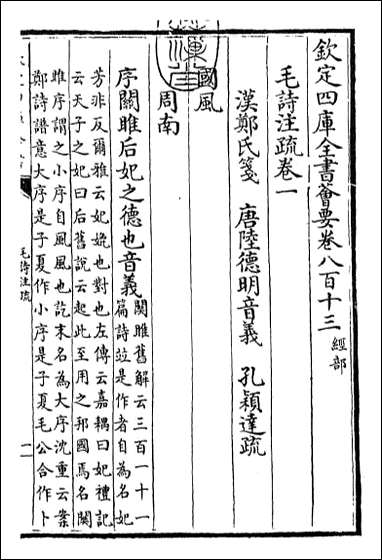 欽定四庫全書薈要卷八百十三 經部
毛詩注疏卷一
漢鄭氏箋 唐陸德明音義 孔穎達疏
國風
周南
序關雎后妃之德也音義關雎舊解云三百一十一
篇詩竝是作者自為名妃
芳非反爾雅云妃媲也對也左傳云嘉耦曰妃禮記
云天子之妃曰后舊說云起此至用之邦國焉名關
雎序謂之小序自風風也訖末名為大序沈重云案
鄭詩譜意大序是子夏作小序是子夏毛公合作卜
毛詩注疏
一